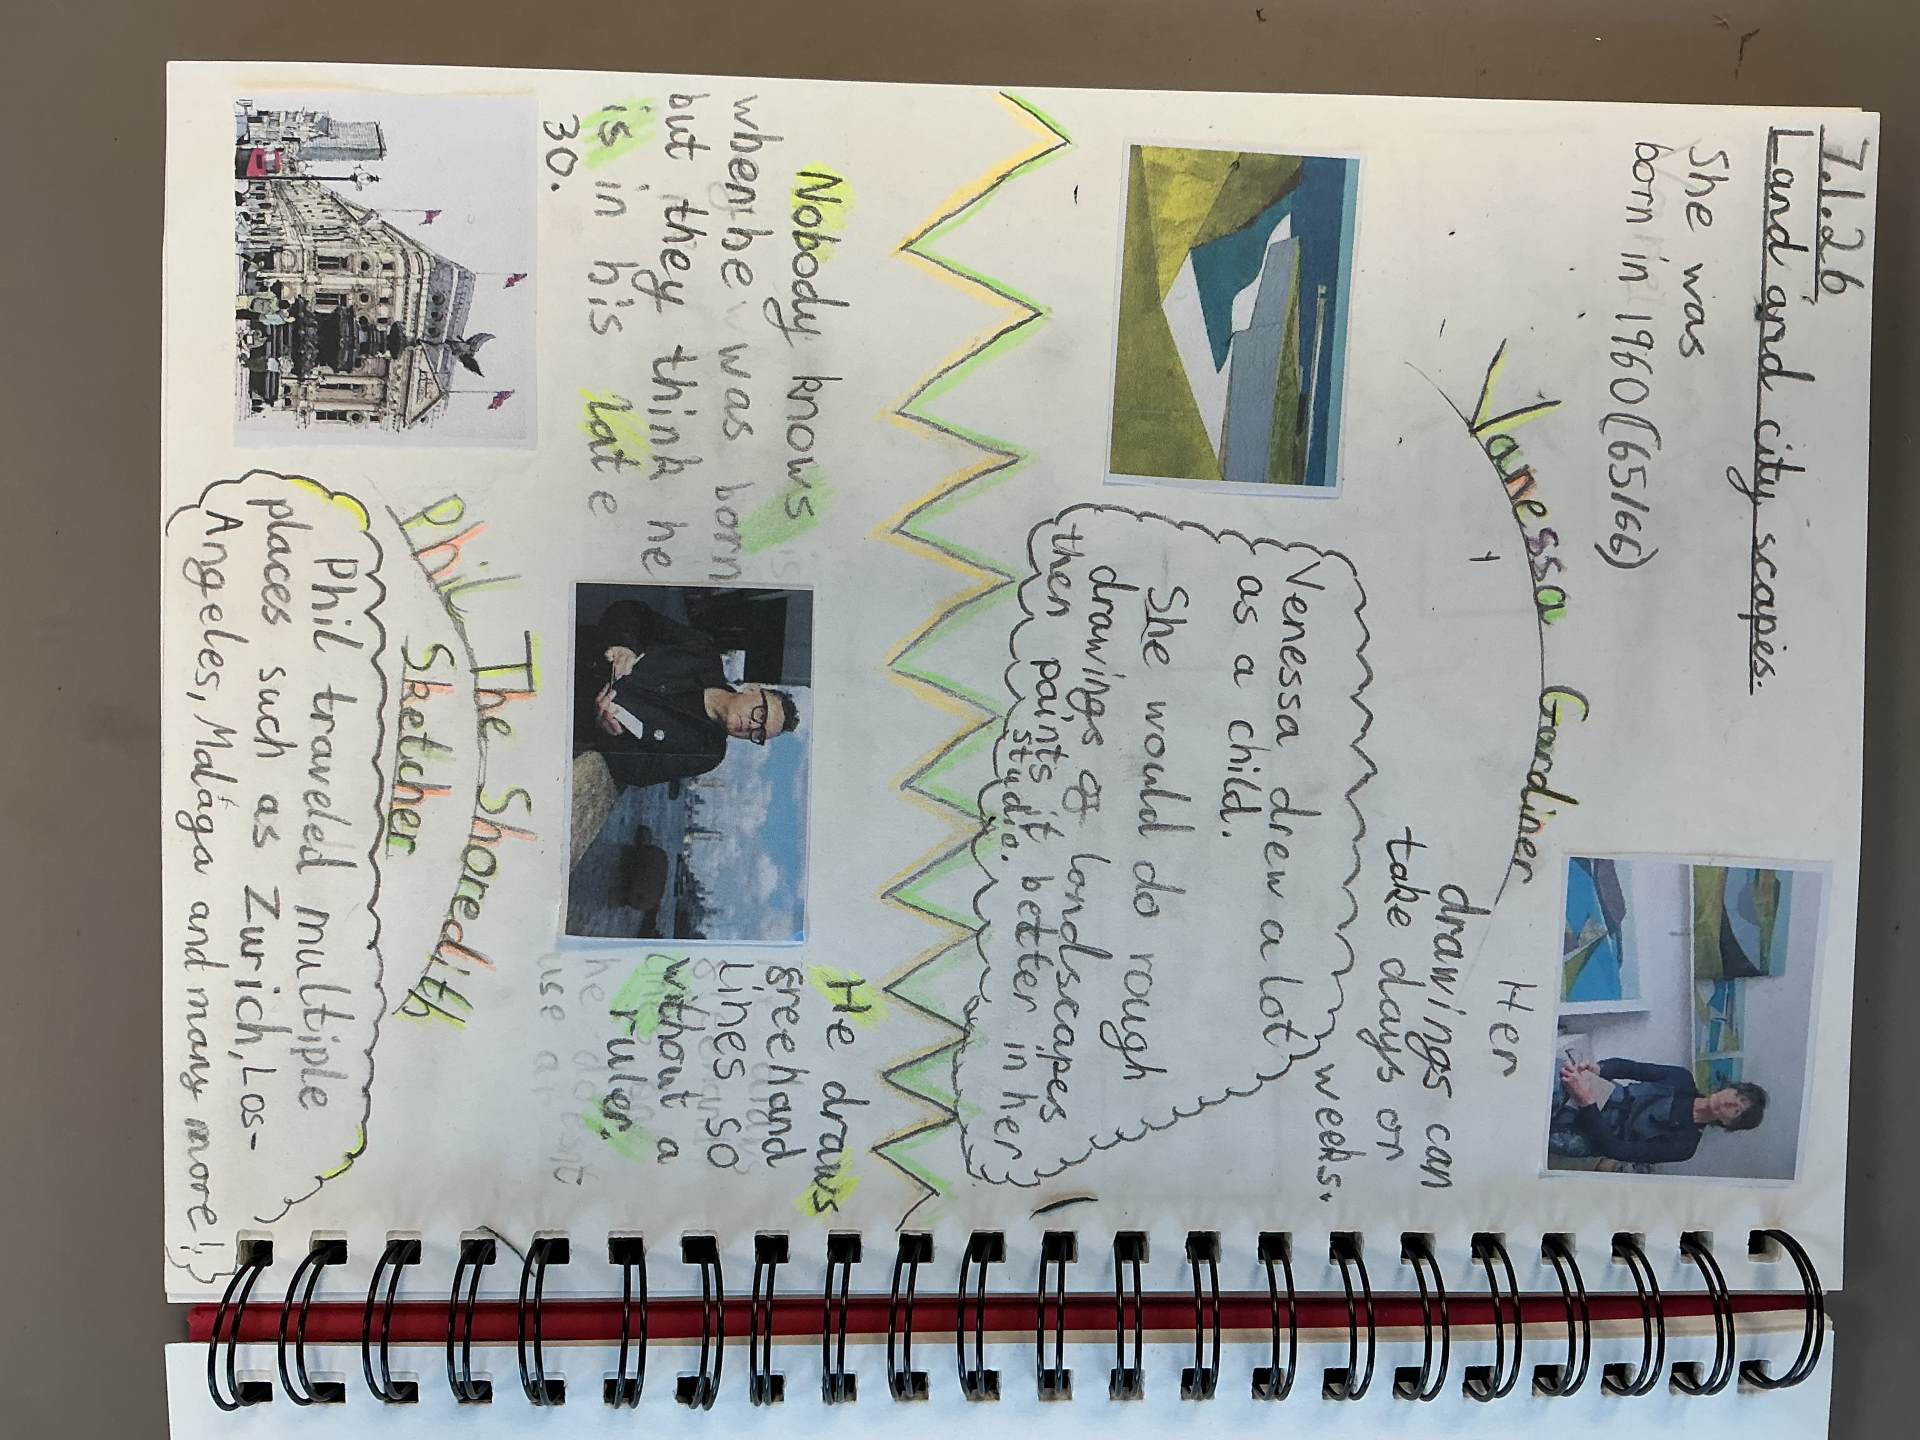 7.1.26
Land and city scapes.
She was
born in 1960 (65/66)
Vanessa Gardiner
Her
drawings can
take days or
weeks.
Venessa drew a lot
as a child.
She would do rough
drawings of landscapes
then paints it better in her
studio.
Nobody knows
when he was born
but they think he
is in his late
30.
He draws
freehand
lines so
without a
ruler.
Phil The Shoredith
Sketcher
Phil traveled multiple
places such as Zurich, Los-
Angeles, Malaga and many more!